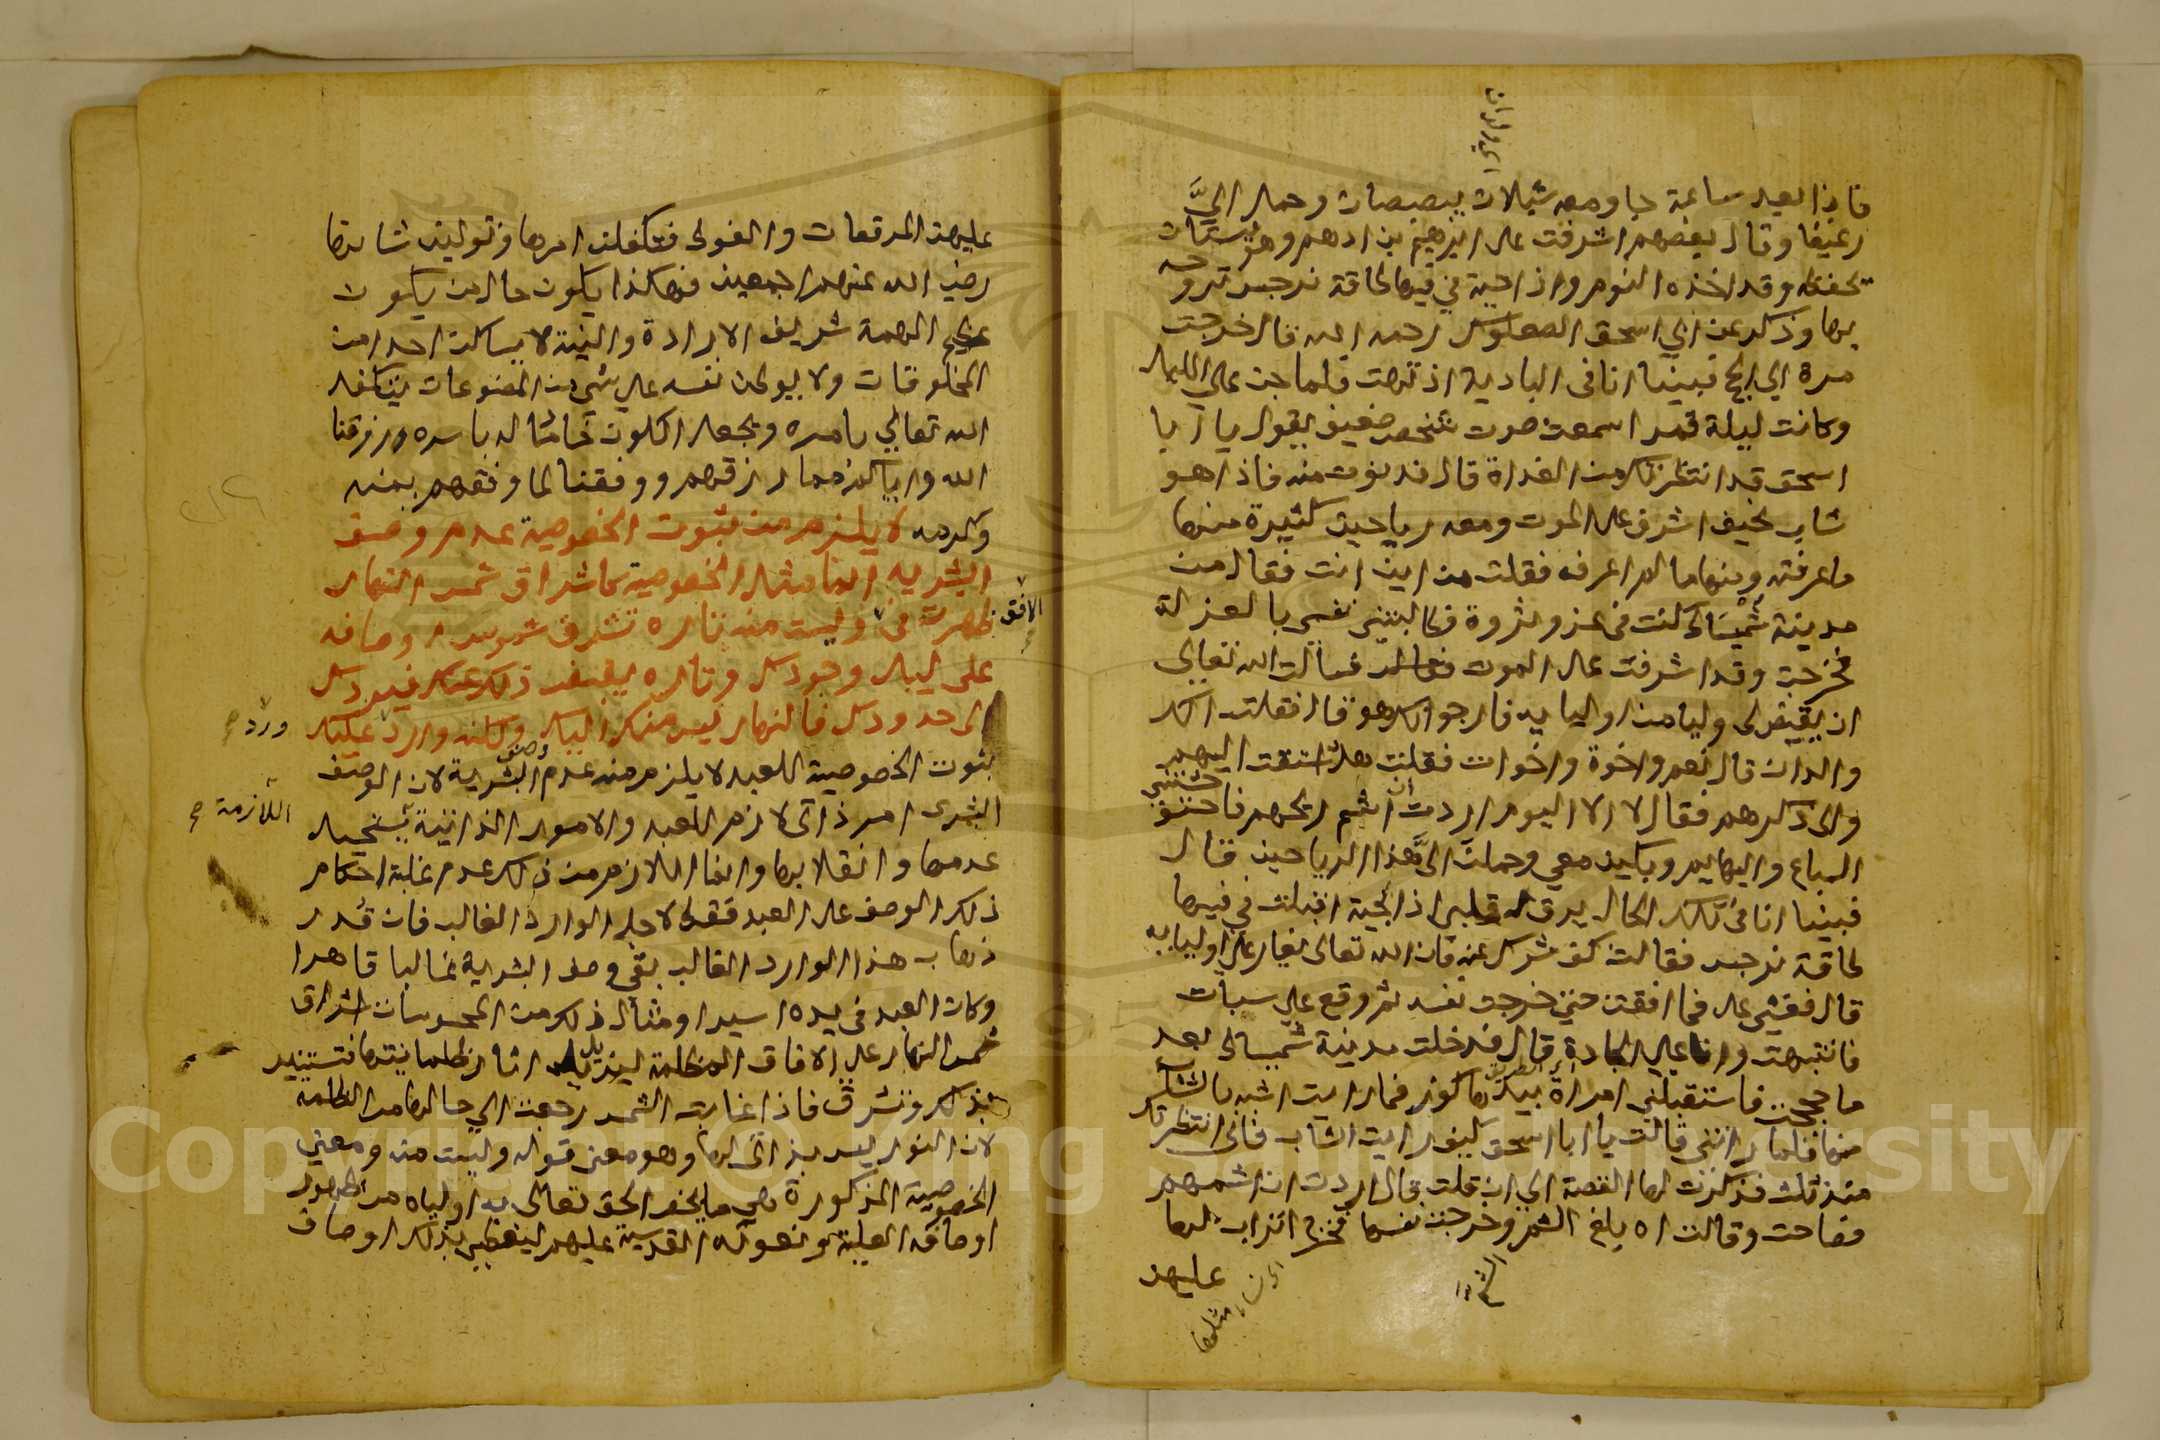 فاذا بعد ساعة جا ومعه شبلان يبصبصان وحمل اليَّ
رغيفا وقال بعضهم اشرفت على ابرهيم بن ادهم وهو ببستان
يحفظه وقد اخذه النوم واذا حية في فيها طاقة نرجس تروحه
بها وذكر عن ابي اسحق الصعلوكي رحمه الله قال خرجت
مرة الي الحج فبينا انا في البادية اذ تهت فلما جن علي الليل
وكانت ليلة قمرا سمعت صوت شخص ضعيف يقول يا ابا
اسحق قد انتظرتك من الغداة قال فدنوت منه فاذا هو
شاب نحيف اشرف على الموت ومعه رياحين كثيرة منها
ما عرفته ومنها ما لم اعرف فقلت من اين انت فقال من
مدينة شميشاط كنت في عز وثروة فطالبتني نفسي بالعزلة
فخرجت وقد اشرفت على الموت فسالت الله تعالى
ان يقيض لي وليا من اوليايه فارجو انك هو قال فقلت الك
والدان قال نعم واخوة واخوات فقلت هل اشتقت اليهم
والى ذكرهم فقال لا الا اليوم اردت ان اشم ريحهم فاحتوشتني
السباع والبهايم وبكين معي وحملن الىَّ هذا الرياحين قال
فبينا انا في تلك الحال يرق له قلبي اذا بحية اقبلت في فيها
طاقة نرجس فقالت كف شرك عنه فان الله تعالى يغار على اوليايه
قال فغشي على فما افقت حتى خرجت نفسه ثم وقع علي سبات
فانتبهت وانا علي الجادة قال فدخلت مدينة شميشاط بعد
ما حججت فاستقبلتني امراة بيدها كوز فما رايت اشبه بالشاب
منها فلما راتني قالت يا ابا اسحق كيف رايت الشاب فاني انتظرتك
منذ ثلث فذكرت لها القصة الي ان قلت قال اردت ان اشمهم
فصاحت وقالت اه بلغ الشم وخرجت نفسها فخرج اتراب لها
عليهن
عليهن المرقعات والفوط فتكفلن امرها وتولين شانها
رضي الله عنهم اجمعين فهكذا يكون حال من يكون
علي الهمة شريف الارادة والنية لا يساكن احدا من
المخلوقات ولا يوطن نفسه علي شي من المصنوعات يتكفل
الله تعالي بامره ويجعل الكون خادما له باسره ورزقنا
الله واياكم مما رزقهم ووفقنا لما وفقهم بمنه
وكرمه لا يلزم من ثبوت الخصوصية عدم وصف
البشريه انما مثل الخصوصية كاشراق شمس النهار
ظهرت في الافق وليست منه تاره تشرق شموس اوصافه
على ليل وجودك وتاره يقبض ذلك عنك فيردك
الى حدودك فالنهار ليس منك اليك ولكنه وارد عليك
ورد
ثبوت الخصوصية للعبد لا يلزم منه عدم وصف البشرية لان الوصف
البشرى امر ذاتى لازم للعبد والامور الذاتية يستحيل
اللازمة
عدمها وانقلابها وانما اللازم من ذلك عدم غلبة احكام
ذلك الوصف على العبد فقط لاجل الوارد الغالب فان قُدر
ذهاب هذا الوارد الغالب بقى وصف البشرية غالبا قاهرا
وكان العبد في يده اسيرا ومثال ذلك من المحسوسات اشراق
شمس النهار على الافاق المظلمة ليزيل اثار ظلمانيتها فتستنير
بذلك وتشرق فاذا غابت الشمس رجعت الي حالها من الظلمة
لان النور ليس بذاتى لها وهو معنى قوله وليست منه ومعني
الخصوصية المذكورة هي ما يخص الحق تعالى به اولياه من ظهور
اوصافه العلية ونعوته القدسية عليهم ليغطي بذلك اوصاف